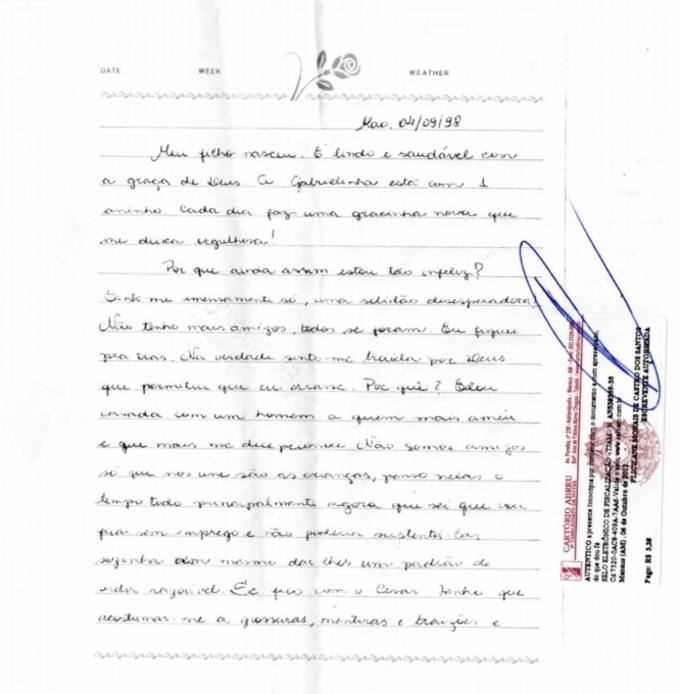 DATE WEEK WEATHER
Mao, 04/09/98
Meu filho nasceu. É lindo e saudável com
a graça de Deus. A Gabrielinha está com 1
aninho. Cada dia faz uma gracinha nova que
me deixa orgulhosa!
Por que ainda assim estou tão infeliz?
Sinto me imensamente só, uma solidão desesperadora!
Não tenho mais amigos, todos se foram. Eu fiquei
pra trás. Na verdade sinto-me traída por Deus
que permitiu que eu errasse. Por quê? Estou
casada com um homem a quem mais amei
e que mais me decepcionou. Não somos amigos
só que nos une são as crianças, penso nelas o
tempo todo principalmente agora que sei que vou
ficar sem emprego e não poderei sustentá-las
sozinha nem mesmo dar lhes um padrão de
vida razoável. E fico com o César tenho que
acostumar-me a grossuras, mentiras e traições e
CARTÓRIO ABREU
AUTENTICO a presente fotocópia por
do que dou fé
SELO ELETRÔNICO DE FISCALIZAÇÃO
Manaus (AM), 06 de Outubro de
DE CASTRO DOS SANTOS
ESCREVENTE AUTORIZADA
Pago: R$ 3,38